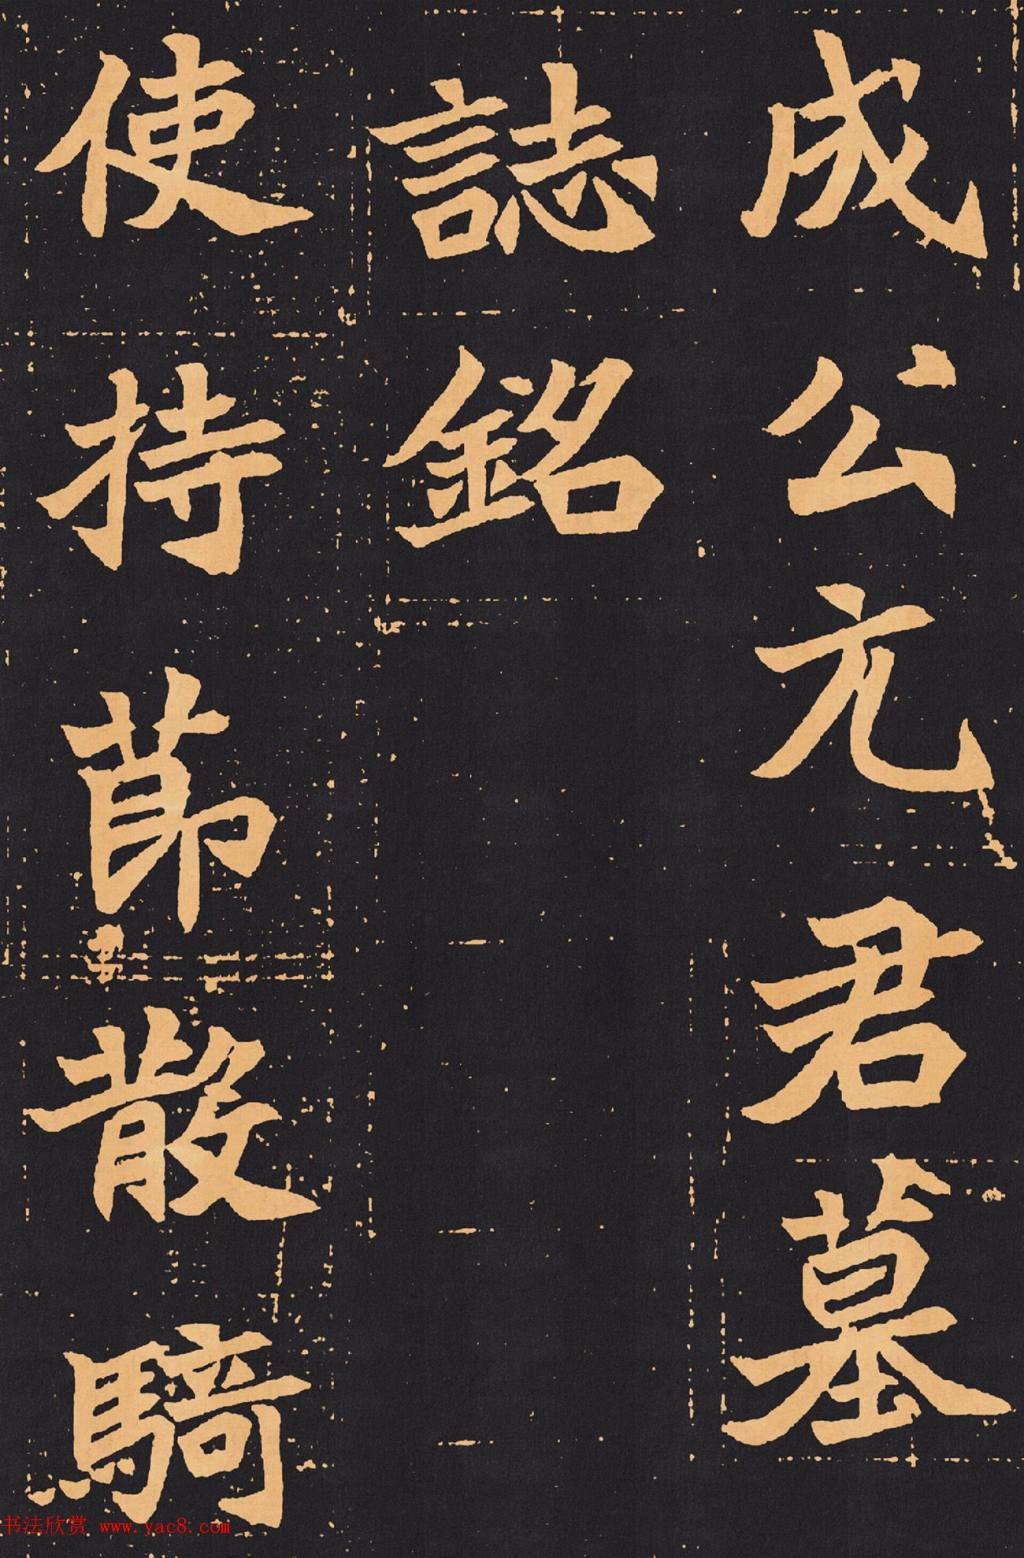 成公元君墓
誌銘
使持莭散騎
书法欣赏 www.yac8.com